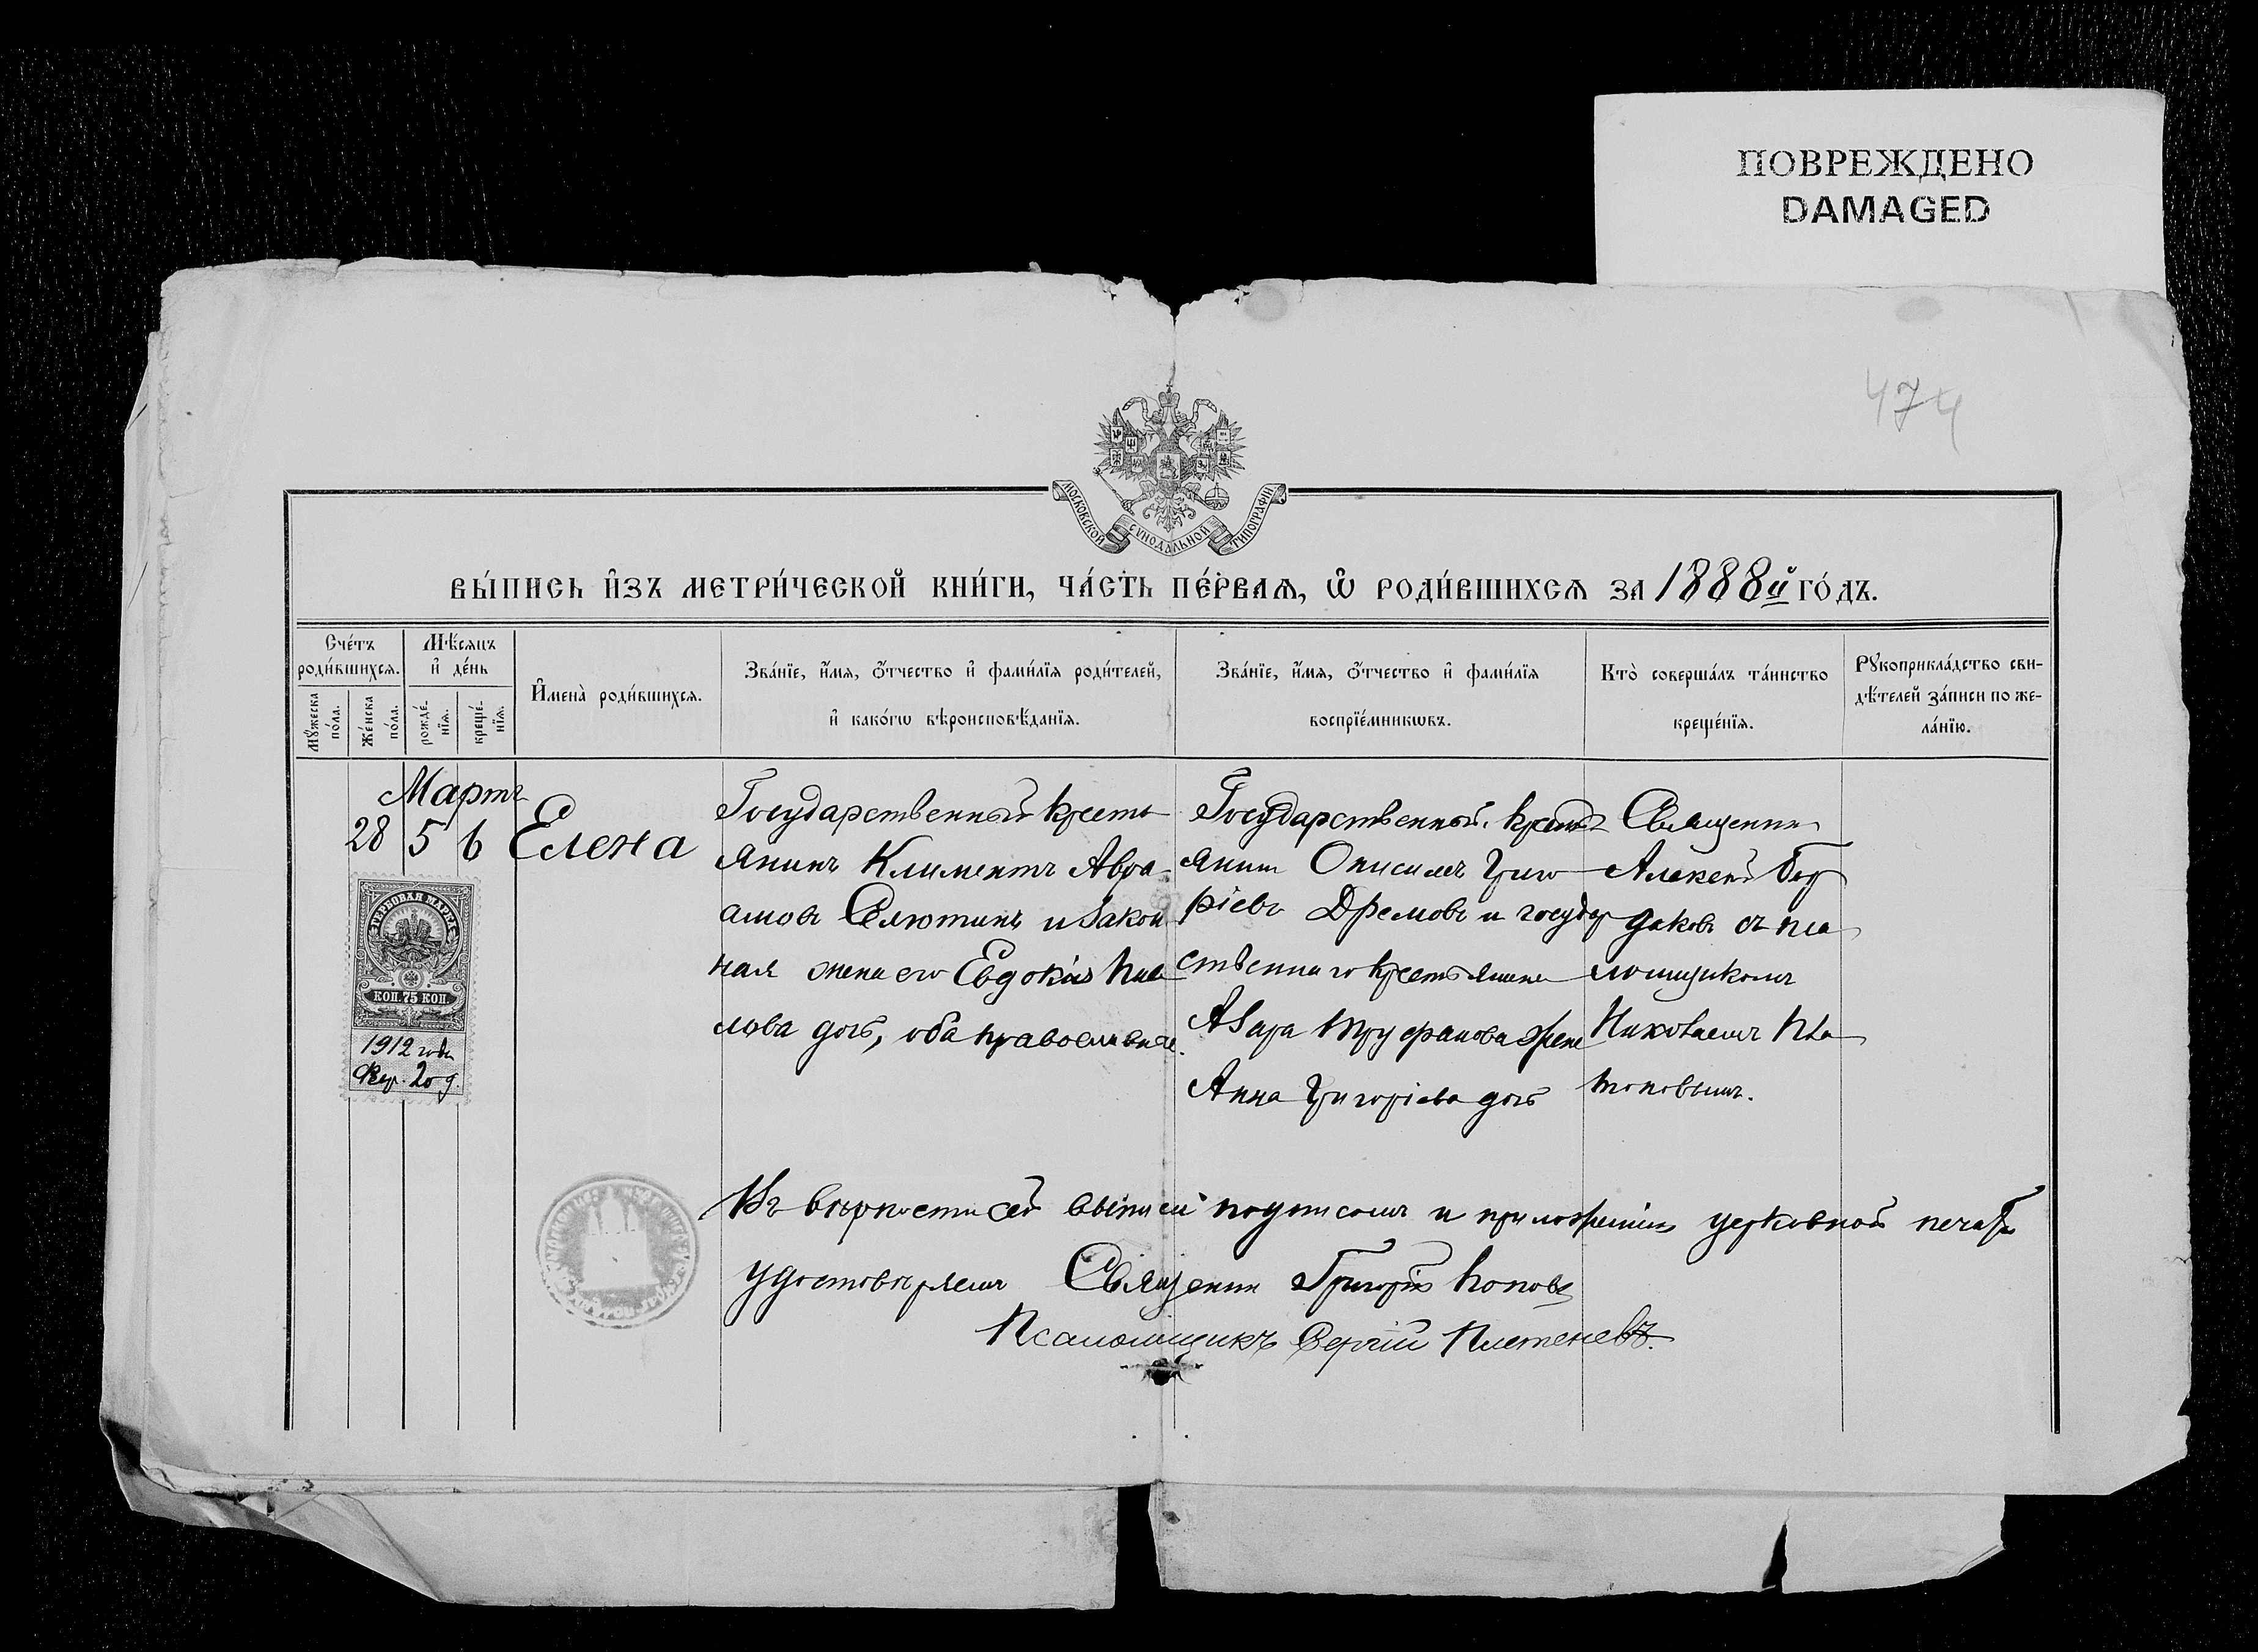 ПОВРЕЖДЕНО
DAMAGED
474
МОСКОВСКОЙ СѴНОДАЛЬНОЙ ТИПОГРАФІИ
ВЫ́ПИСЬ И҆ЗЪ МЕТРИ́ЧЕСКОЙ КНИ́ГИ, ЧА́СТЬ ПЕ́РВАѦ, Ѽ РОДИ́ВШИХСѦ ЗА 1888й ГО́ДЪ.
Сче́тъ роди́вшихсѧ.
Мѣ́сѧцъ и҆ де́нь
Мꙋ́жеска по́ла.
Же́нска по́ла.
рожде́нїѧ.
креще́нїѧ.
И҆мена̀ роди́вшихсѧ.
Зва́нїе, и҆́мѧ, ѻ҆́тчество и҆ фами́лїѧ роди́телей,
и҆ како́гѡ вѣроисповѣ́данїѧ.
Зва́нїе, и҆́мѧ, ѻ҆́тчество и҆ фами́лїѧ
воспрїе́мникѡвъ.
Кто̀ соверша́лъ та́инство
креще́нїѧ.
Рꙋкоприкла́дство сви-
дѣ́телей за́писи по же-
ла́нїю.
Мартъ
28 5 6 Елена
Государственный кресть
янинъ Климентъ Авра
амовъ Селютинъ и закон
ная жена его Евдокія Пав
лова дочь, оба православные.
Государственный крест
янин Онисимъ Григо
ріевъ Дремовъ и государ
ственнаго крестьянина
Азара Труфанова жена
Анна Григоріева дочь
Священник
Алексей Бур
даковъ съ пса
ломщикомъ
Николаемъ Пла
тоновымъ.
ГЕРБОВАЯ МАРКА
КОП. 75 КОП.
1912 года
Фев. 20 д.
Въ верности сей выписи подписомъ и приложеніем церковной печати
удостоверяемъ Священник Григорій Поповъ
Псаломщикъ Сергій Плетеневъ.